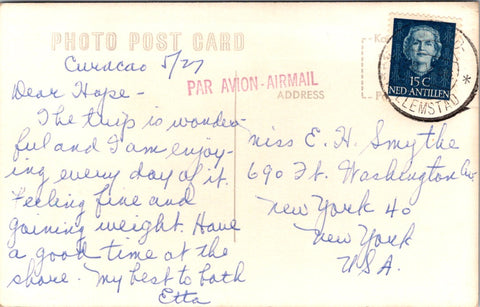 PHOTO POST CARD
Curacao 5/27
PAR AVION-AIRMAIL
Dear Hope-
The trip is wonder-
ful and I am enjoy-
ing every day of it.
Feeling fine and
gaining weight. Have
a good time at the
shore. My best to both
Etta
ADDRESS
Miss E. H. Smythe
690 Ft. Washington Av.
New York 40
New York
U.S.A.
15 C
NED. ANTILLEN
LLEMSTAD